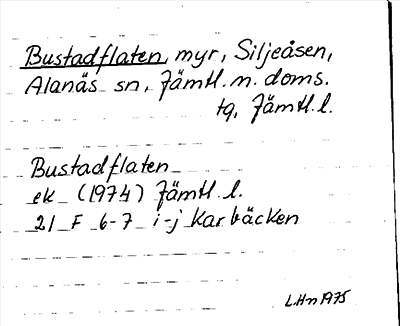 Bustadflaten, myr, Siljeåsen,
Alanäs sn, Jämtl. n. doms.
tg, Jämtl. l.
Bustadflaten
ek (1974) Jämtl. l.
21 F 6-7 i-j Karbäcken
LHn 1975